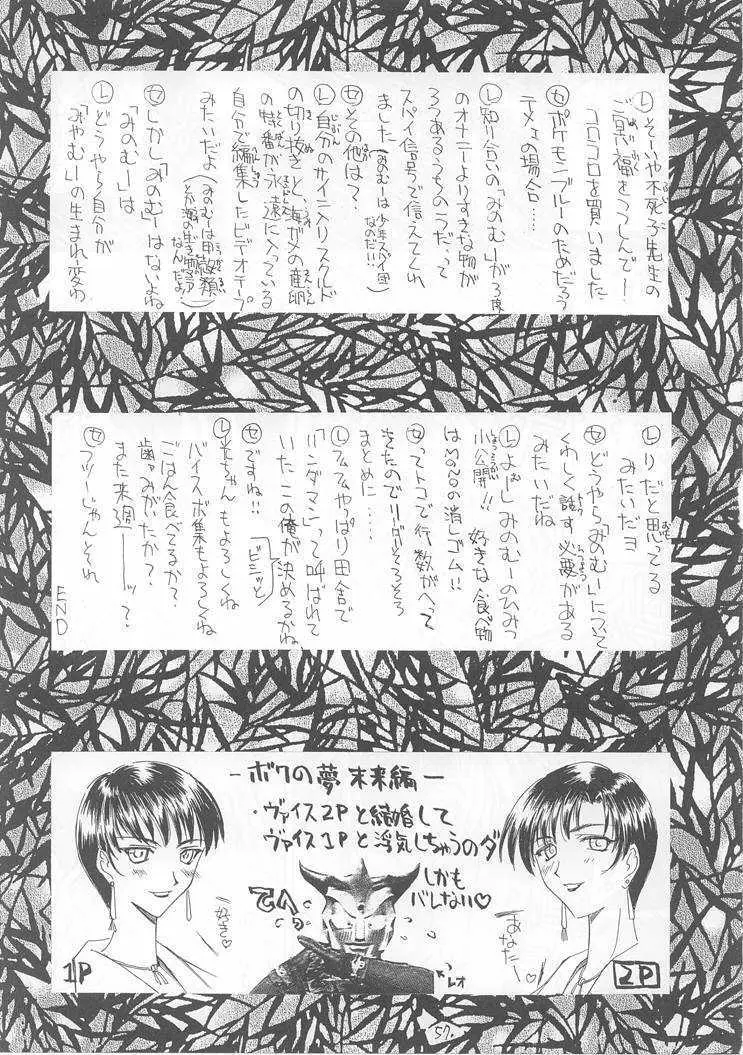 Ⓛそーいや不死子先生の
ご冥福をつつしんでー
コロコロを買いました
セポケモンブルーのためだろう
テメェの場合……
Ⓛ知り合いの「みのむー」が3度
のオナニーよりすきな物が
3つあるうちの1うだって
スパイ信号で伝えてくれ
ました(みのむーは少年スパイ団
なのだ!!)
セその他は?
Ⓛ自分のサイン入りスクルド
の切り抜きと、海ガメの産卵
の特番がう遠に入っている
自分で編集したビデオテープ
みたいだよ(みのむーは甲殻類
とか海の生き物マニア
なんだよ)
セしかし「みのむー」はないよね
「みのむー」は
Ⓛどうやら自分が
「みやむー」の生まれ変わ
Ⓛりだと思ってる
みたいだヨ
セどうやら「みのむー」について
くわしく話す必要がある
みたいだね
Ⓛよーし みのむーのひみつ
小公開!! 好きな食べ物
はMONOの消しゴム!!
セってトコで行数がへって
きたのでリーダーそろそろ
まとめに……
Ⓛフムフムやっぱり田舎で
「パンダマン」って呼ばれて
いた この俺が決めるかね
セですね!! ビシッと
Ⓛそちゃん もよろしくね
バイスリボ集もよろしくね
ごはん食べてるか?
歯ァみがたか?
また来週――ッ?
セフツーじゃんそれ
END
-ボクの夢 未来編-
・ヴァイス2Pと結婚して
ヴァイス1Pと浮気しちゃうのダ
しかも
バレない♡
てへ
好き♡
あなたー♡
レオ
1P
2P
57.